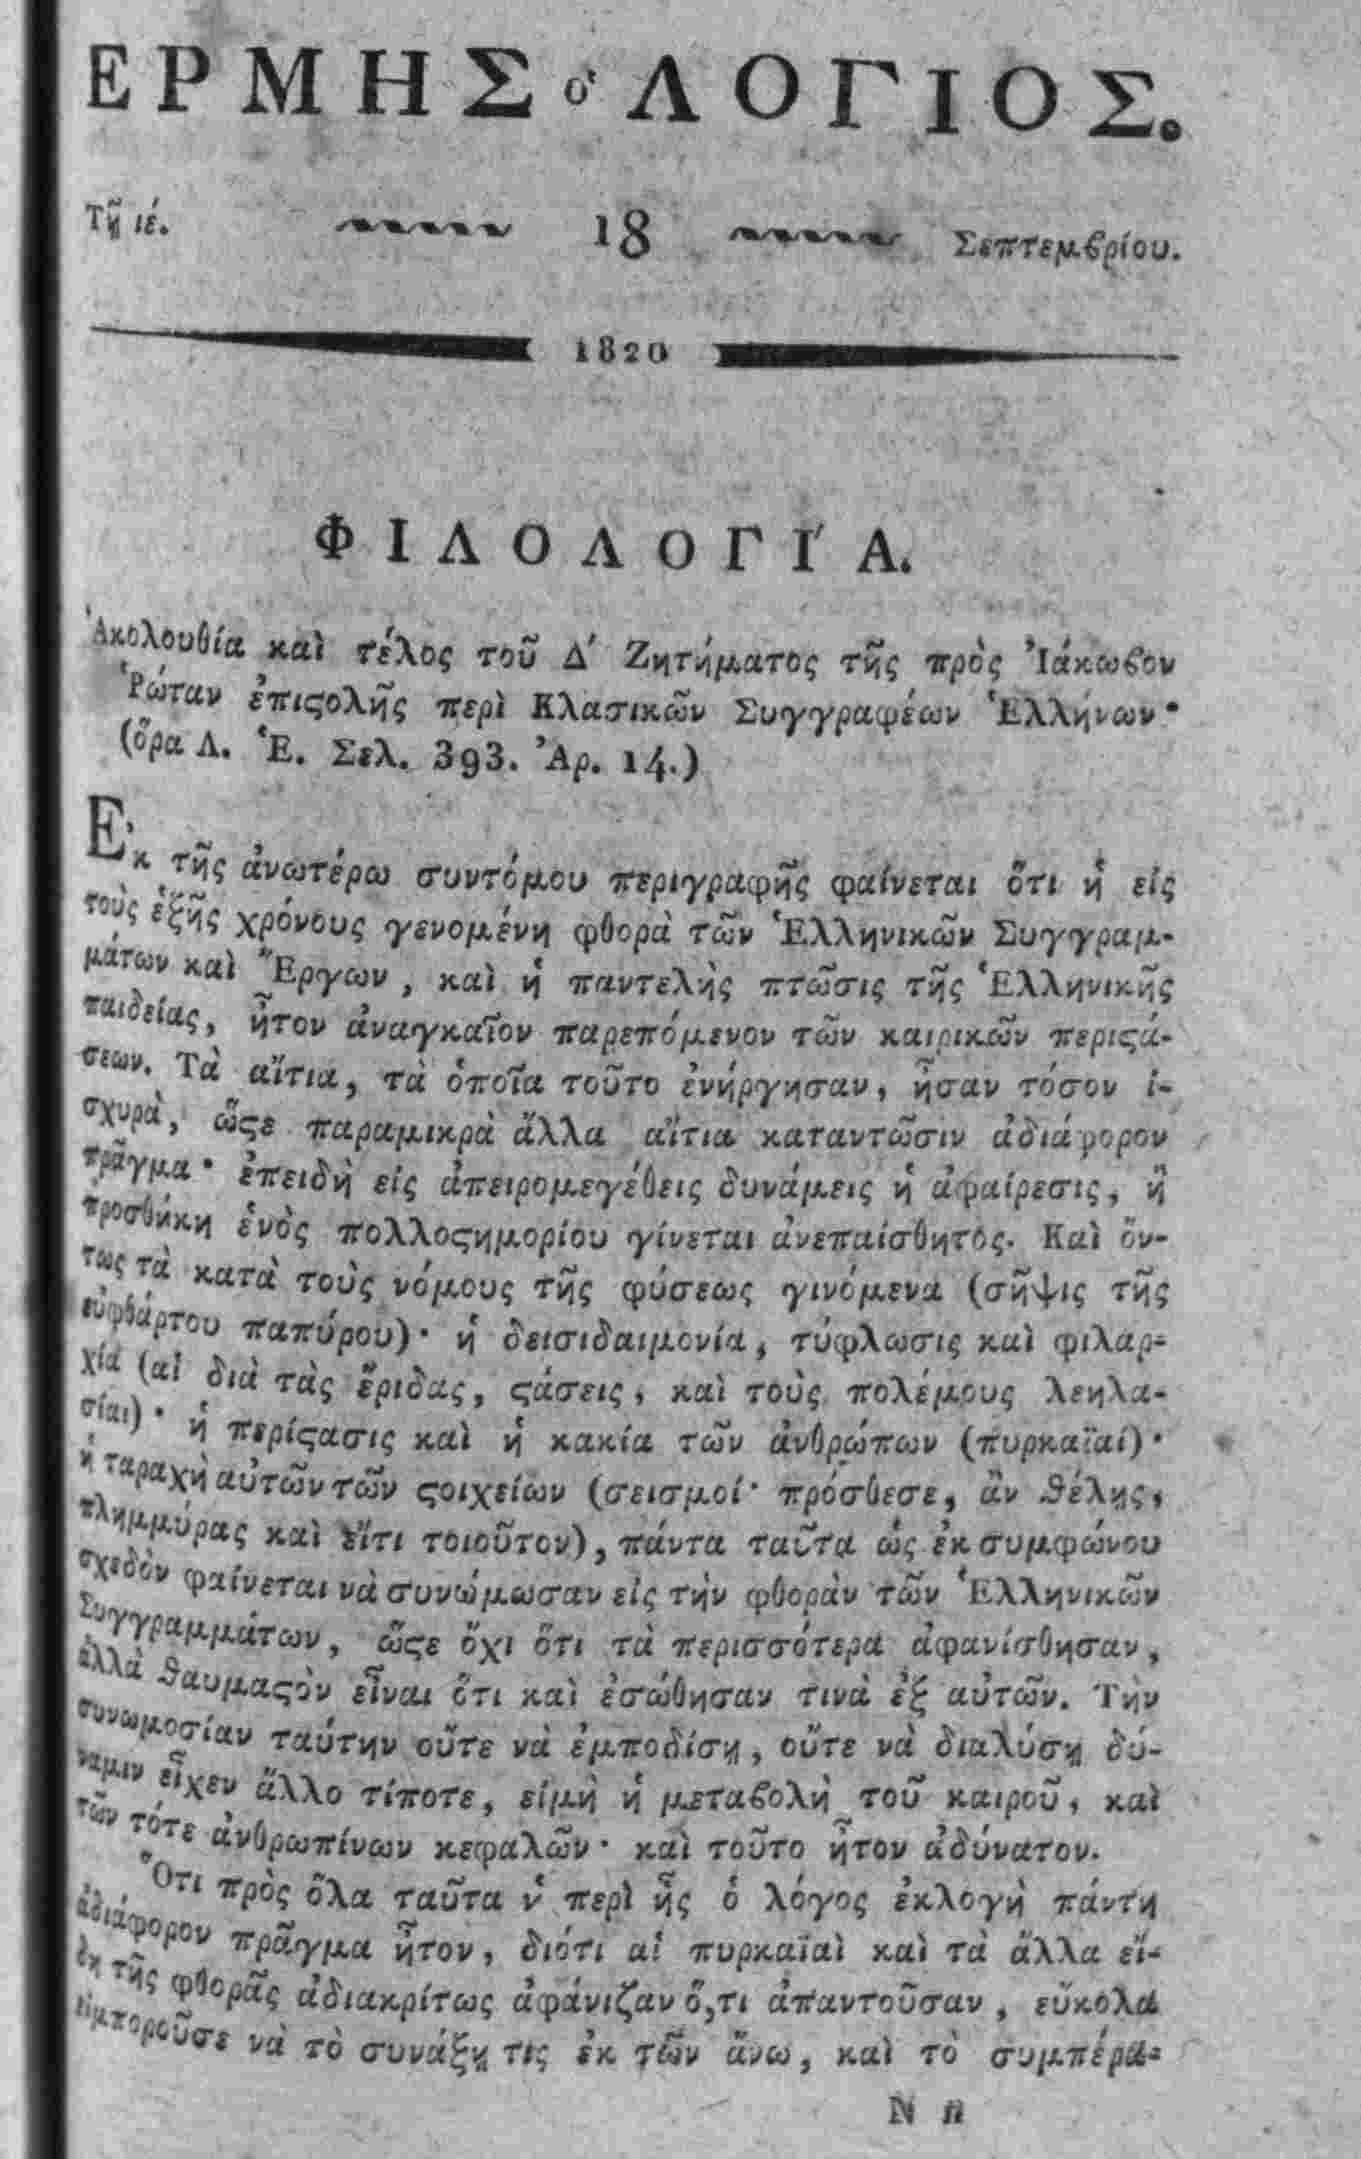 ΕΡΜΗΣ ὁ ΛΟΓΙΟΣ.
Τῇ ιέ. 18 Σεπτεμϐρίου.
1820
ΦΙΛΟΛΟΓΙ΄Α.
Ἀκολουθία καὶ τέλος τοῦ Δ΄ Ζητήματος τῆς πρὸς Ἰάκωϐον
Ῥώταν ἐπιϛολῆς περὶ Κλασικῶν Συγγραφέων Ἑλλήνων·
(ὅρα Λ. Ἑ. Σελ. 393. Ἀρ. 14.)
Ἐκ τῆς ἀνωτέρω συντόμου περιγραφῆς φαίνεται ὅτι ἡ εἰς
τοὺς ἑξῆς χρόνους γενομένη φθορὰ τῶν Ἑλληνικῶν Συγγραμ-
μάτων καὶ Ἔργων, καὶ ἡ παντελὴς πτῶσις τῆς Ἑλληνικῆς
παιδείας, ἦτον ἀναγκαῖον παρεπόμενον τῶν καιρικῶν περιϛά-
σεων. Τὰ αἴτια, τὰ ὁποῖα τοῦτο ἐνήργησαν, ἦσαν τόσον ἰ-
σχυρὰ, ὥϛε παραμικρὰ ἄλλα αἴτια καταντῶσιν ἀδιάφορον
πρᾶγμα· ἐπειδὴ εἰς ἀπειρομεγέθεις δυνάμεις ἡ ἀφαίρεσις, ἢ
προσθήκη ἑνὸς πολλοϛημορίου γίνεται ἀνεπαίσθητος. Καὶ ὄν-
τως τὰ κατὰ τοὺς νόμους τῆς φύσεως γινόμενα (σῆψις τῆς
εὐφθάρτου παπύρου)· ἡ δεισιδαιμονία, τύφλωσις καὶ φιλαρ-
χία (αἱ διὰ τὰς ἔριδας, ϛάσεις, καὶ τοὺς πολέμους λεηλα-
σίαι)· ἡ περίϛασις καὶ ἡ κακία τῶν ἀνθρώπων (πυρκαϊαί)·
ἡ ταραχὴ αὐτῶν τῶν ϛοιχείων (σεισμοί· πρόσθεσε, ἂν θέλῃς,
πλημμύρας καὶ εἴτι τοιοῦτον), πάντα ταῦτα ὡς ἐκ συμφώνου
σχεδὸν φαίνεται νὰ συνώμωσαν εἰς τὴν φθορὰν τῶν Ἑλληνικῶν
Συγγραμμάτων, ὥϛε ὄχι ὅτι τὰ περισσότερα ἀφανίσθησαν,
ἀλλὰ θαυμαϛὸν εἶναι ὅτι καὶ ἐσώθησαν τινὰ ἐξ αὐτῶν. Τὴν
συνωμοσίαν ταύτην οὔτε νὰ ἐμποδίσῃ, οὔτε νὰ διαλύσῃ δύ-
ναμιν εἶχεν ἄλλο τίποτε, εἰμὴ ἡ μεταϐολὴ τοῦ καιροῦ, καὶ
τῶν τότε ἀνθρωπίνων κεφαλῶν· καὶ τοῦτο ἦτον ἀδύνατον.
Ὅτι πρὸς ὅλα ταῦτα ἡ περὶ ἧς ὁ λόγος ἐκλογὴ πάντη
ἀδιάφορον πρᾶγμα ἦτον, διότι αἱ πυρκαϊαὶ καὶ τὰ ἄλλα εἴ-
δη τῆς φθορᾶς ἀδιακρίτως ἀφάνιζαν ὅ,τι ἀπαντοῦσαν, εὔκολα
εἰμποροῦσε νὰ τὸ συνάξῃ τις ἐκ τῶν ἄνω, καὶ τὸ συμπέρα-
Ν n